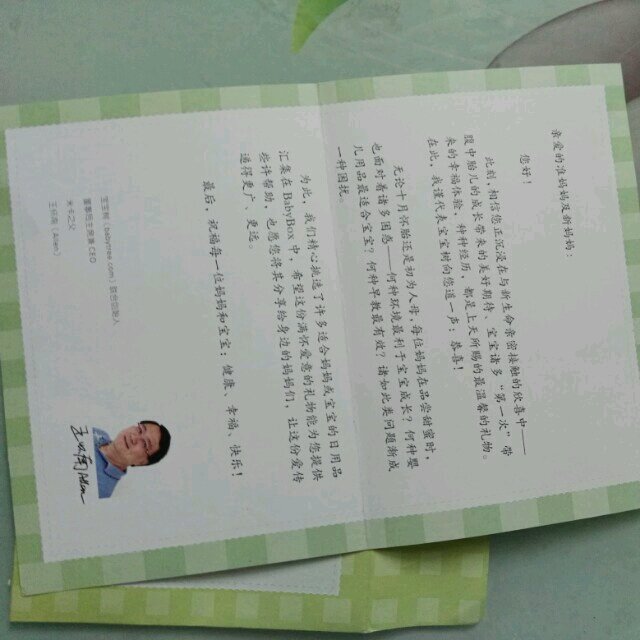 亲爱的准妈妈及新妈妈：
您好！
此刻，相信您正沉浸在与新生命亲密接触的欣喜中——
腹中胎儿的成长带来的美好期待，宝宝诸多“第一次”带
来的幸福体验，种种经历，都是上天所赐的最温馨的礼物。
在此，我谨代表宝宝树向您道一声：恭喜！
无论十月怀胎还是初为人母，每位妈妈在品尝甜蜜时，
也面对着诸多困惑——何种环境最利于宝宝成长？何种婴
儿用品最适合宝宝？何种早教最有效？诸如此类问题渐成
一种困扰。
为此，我们精心挑选了许多适合妈妈或宝宝的日用品
汇集在 BabyBox 中，希望这份满怀爱意的礼物能为您提供
些许帮助，也愿您将其分享给身边的妈妈们，让这份爱传
递得更广、更远。
最后，祝福每一位妈妈和宝宝：健康、幸福、快乐！
宝宝树（babytree.com）联合创始人
董事局主席兼 CEO
米卡之父
王怀南（Allen）
王怀南 Allen